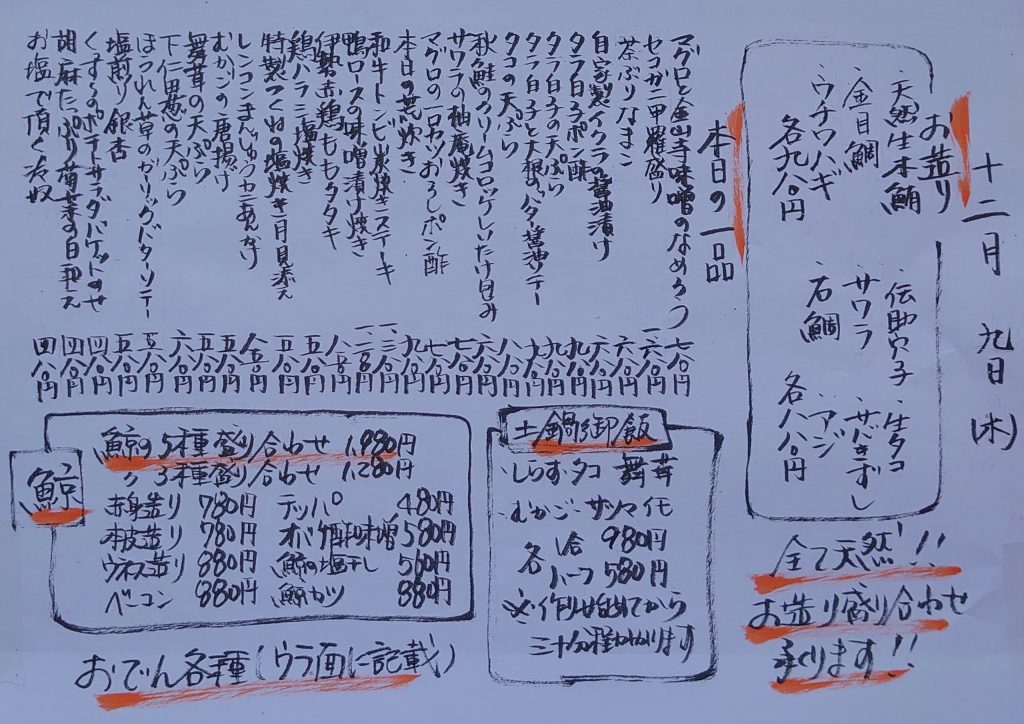 十二月 九日 (木)
お造り
・天然生本鮪
・金目鯛
・ウチワハギ
各九八〇円
・伝助穴子 ・生タコ
・サワラ ・サバきずし
・石鯛 ・アジ
各八八〇円
全て天然!!
お造り盛り合わせ
承ります!!
本日の一品
マグロと金山寺味噌のなめろう 七八〇円
セコガニ甲羅盛り
茶ぶりなまこ 六八〇円
自家製イクラの醤油漬け
タラ白子ポン酢 九八〇円
タラ白子の天ぷら 九八〇円
タラ白子と大根のバタ醤油ソテー
タコの天ぷら
秋鮭のクリームコロッケしいたけ包み
サワラの柚庵焼き
マグロの一口カツおろしポン酢
本日の荒炊き
和牛トンビ炭焼きステーキ
鴨ロースの味噌漬け焼き
伊勢赤鶏ももタタキ
鶏ハラミ塩焼き 五八〇円
特製つくねの塩焼き月見添え
レンコンまんじゅうカニあんかけ
むかごの唐揚げ 五八〇円
舞茸の天ぷら
下仁田葱の天ぷら 六八〇円
ほうれん草のガーリックバターソテー
塩煎り銀杏 五八〇円
くずし ポテトサラダバケットのせ 四八〇円
胡麻たっぷり菊菜の白和え 四八〇円
お塩で頂く冷奴 四八〇円
土鍋御飯
・しらす・タコ・舞茸
・むかご・サツマイモ
各 1合 980円
ハーフ 580円
※作り始めてから
三十分程かかります
鯨
鯨の5種盛り合わせ 1,980円
〃 3種盛り合わせ 1,280円
赤身造り 780円 テッパ 480円
本皮造り 780円 オバケ酢味噌 580円
ウネス造り 880円 鯨の塩干し 560円
ベーコン 880円 鯨カツ 880円
おでん各種(ウラ面に記載)